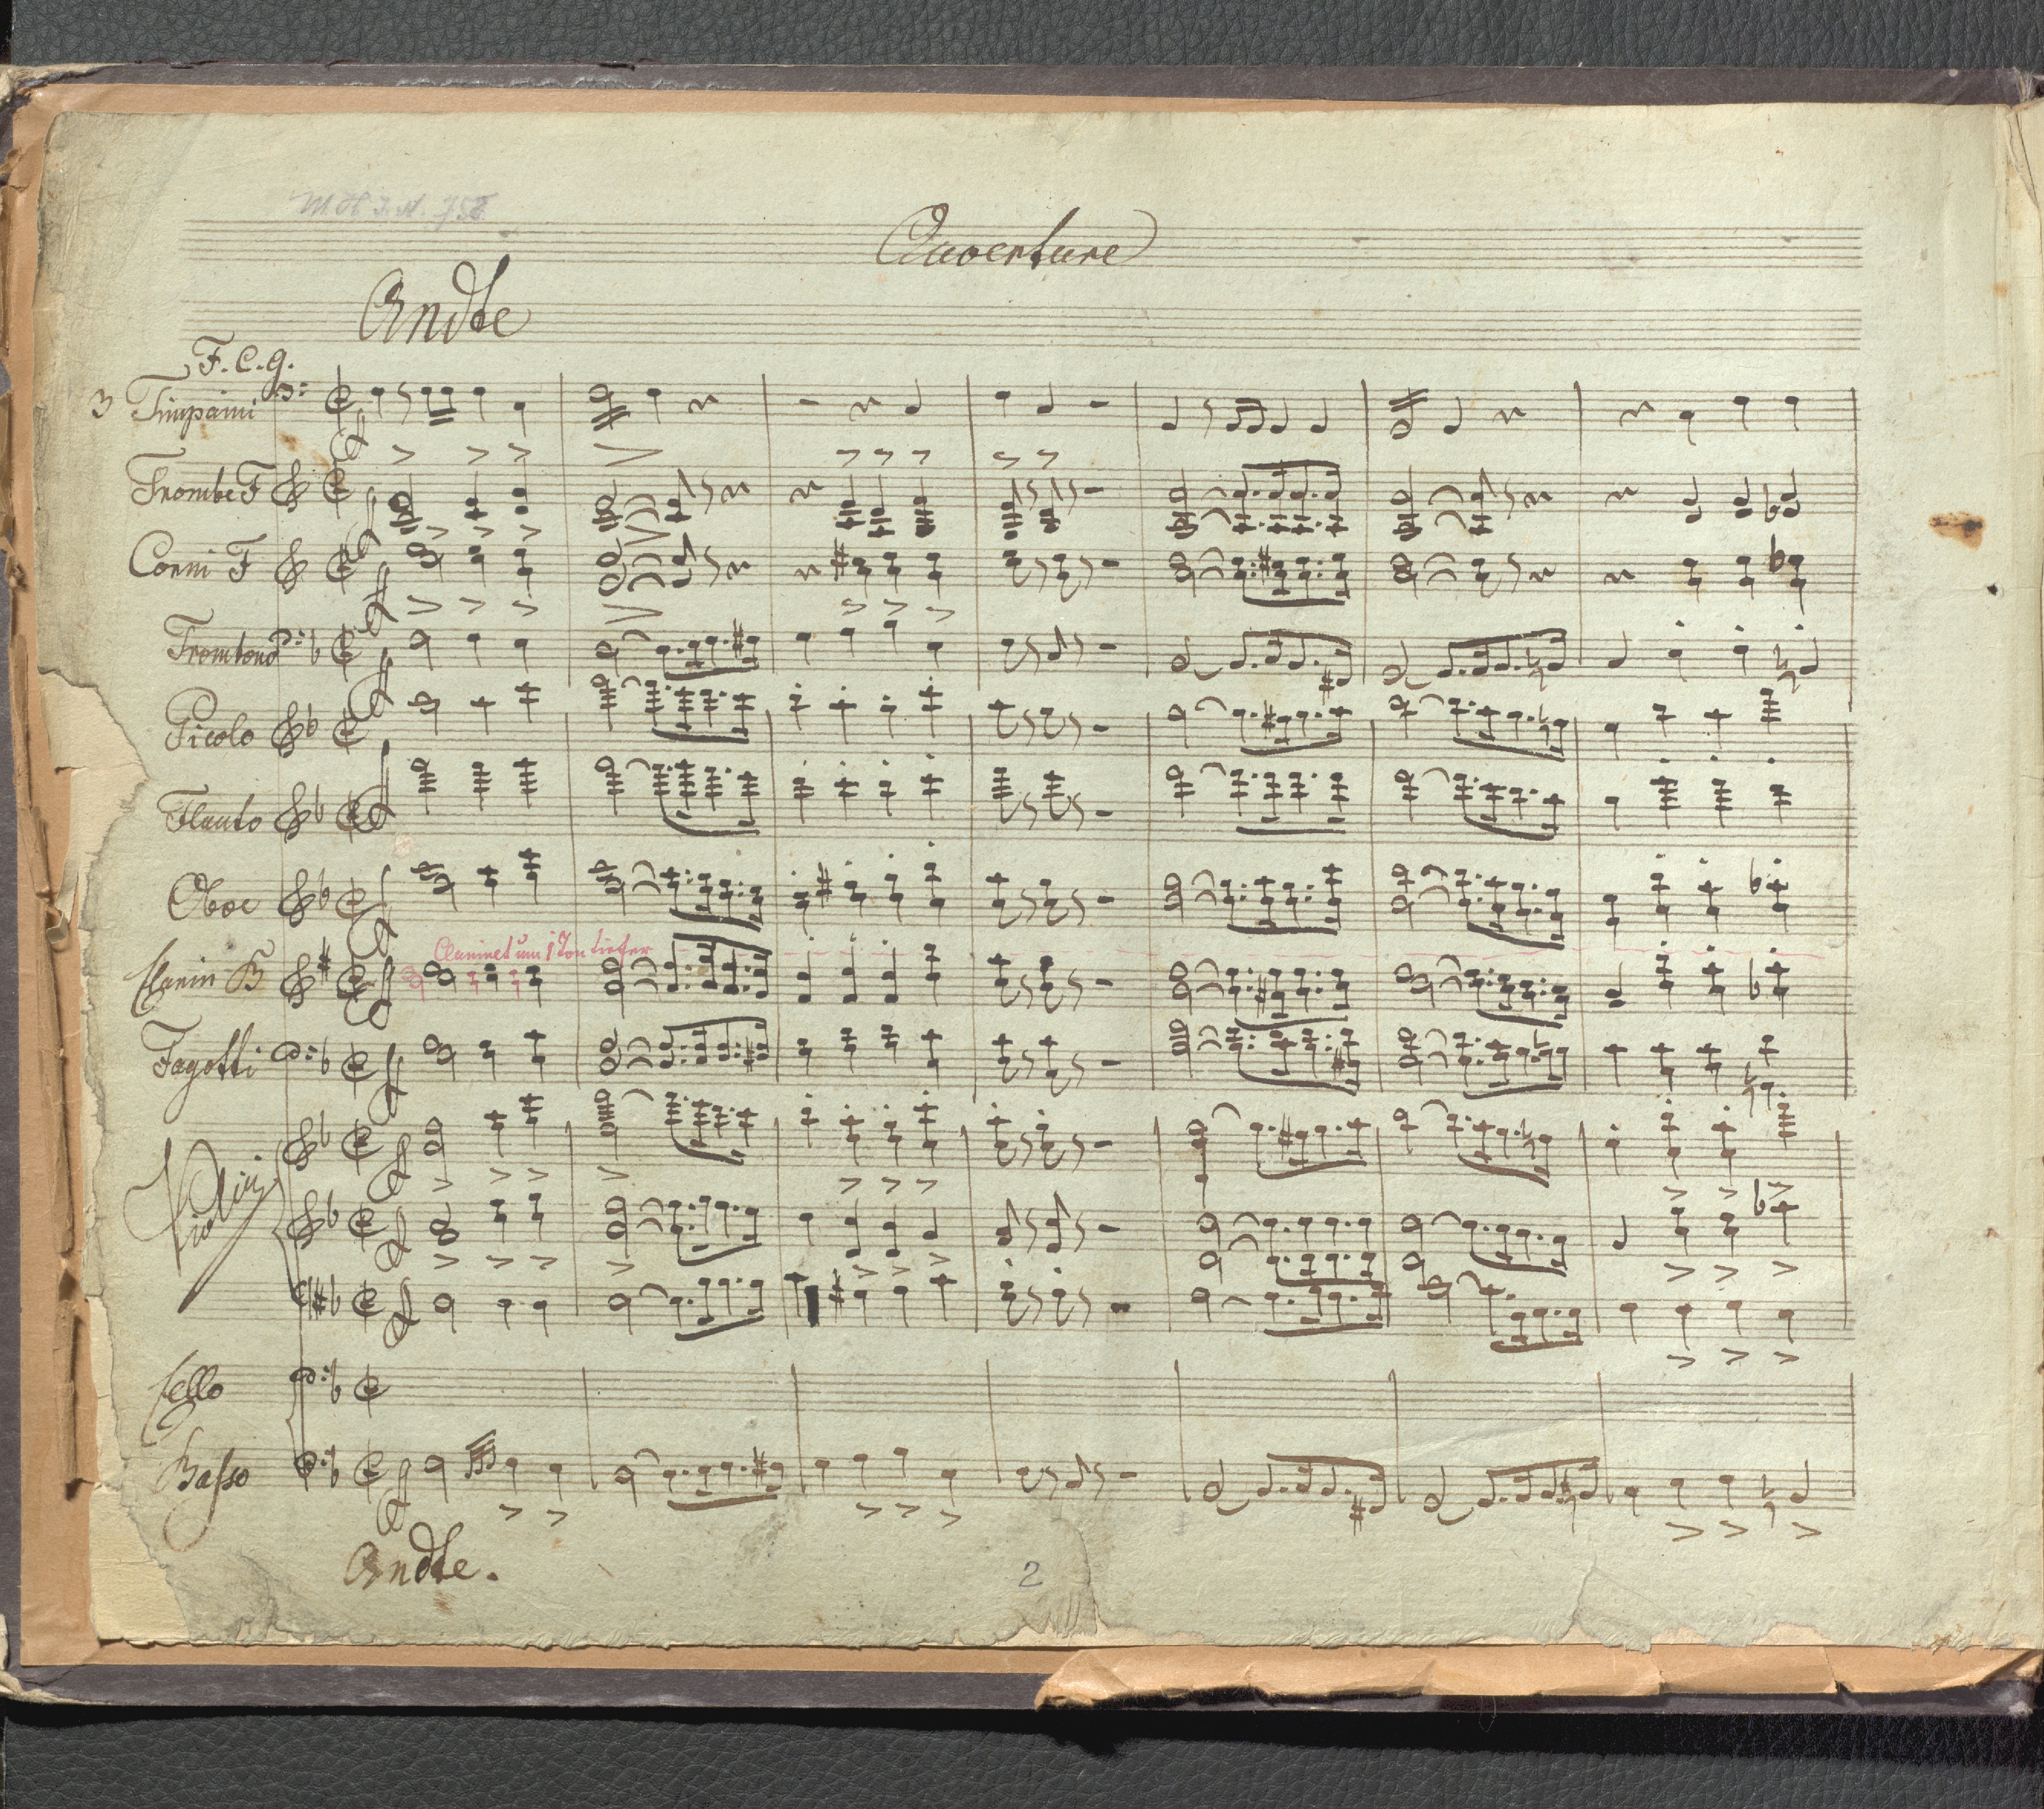 M H I. N. 758
Ouverture
Andte
F. C. g.
3 Timpani
Trombe F
Corni F
Trombone
Picolo
Flauto
Oboe
Clarinet um 1 Ton tiefer
Clarin B
Fagotti
Violini
Cello
Basso
Andte.
2